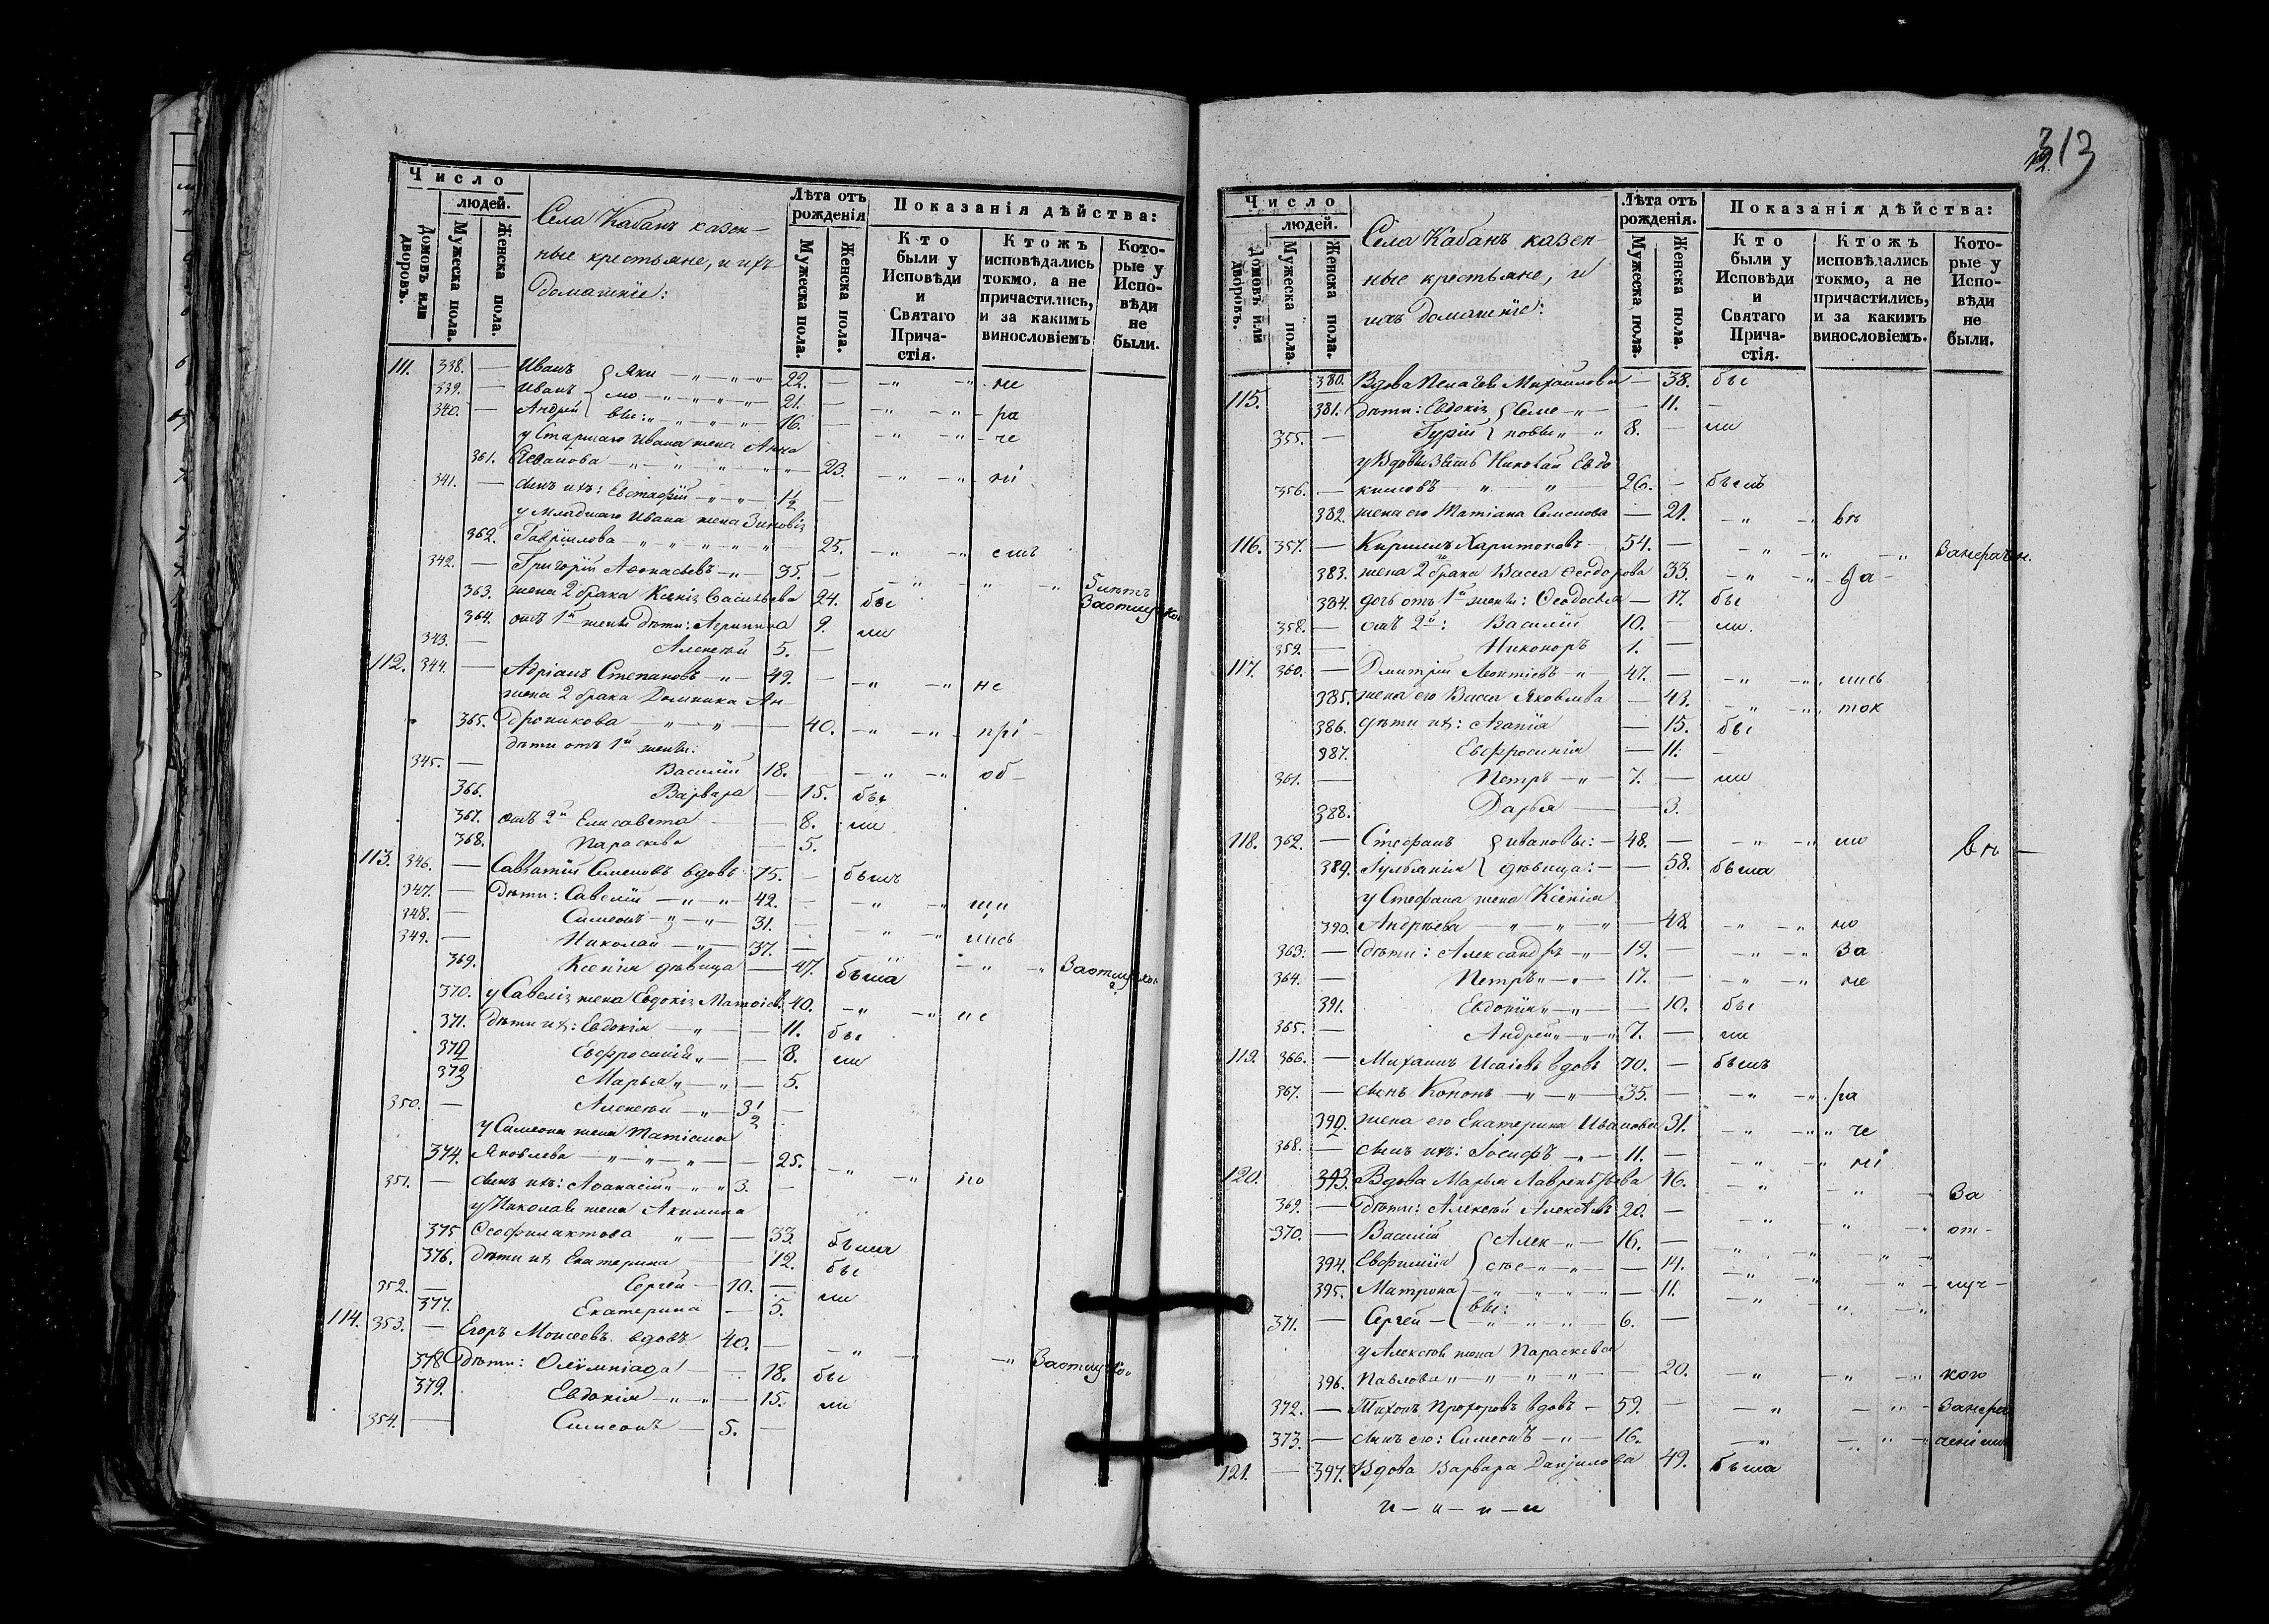 Число
людей.
Домовъ или дворовъ.
Мужеска пола.
Женска пола.
Села Кабанъ казен-
ные крестьяне, и ихъ
домашніе:
Лѣта отъ рожденія
Мужеска пола.
Женска пола.
Показанія дѣйства:
Кто были у Исповѣди и Святаго Прича- стія.
Ктожъ исповѣдались токмо, а не причастились, и за какимъ винословіемъ
Кото- рые у Испо- вѣди не были.
111. 338. — Иванъ Яки — „ — „ — „ 22. — — „ — „ - не
339. — Иванъ мо — „ — „ — „ 21. — — „ — „ - ра
340. — Андрей вы: „ „ „ 16. — — „ — „ - че
у Старшаго Ивана жена Анна
361. — „ — „ — „ 23. — „ — „ ні
341. — сынъ ихъ: Евстафій — „ — „ 1 1/2 —
у младшаго Ивана жена Зиновія
362. Гавріилова — „ — „ — „ — 25. — „ — „ емъ
342. — Григорій Аѳонасьевъ — „ — 35. — — „ — „ — „ 5 лѣтъ
363. жена 2 брака Ксенія Васильева 24. бы Заотлучкою
364. отъ 1й жены дѣти: Агрипина 9. ли
343. — Алексѣй 5. —
112. 344. — Адріанъ Степановъ — „ — 49. — — „ — „ не
жена 2 брака Домника Ан-
365. дроникова — „ — „ — 40. — „ — „ - прі -
дѣти отъ 1й жены:
345. — Василій 18. — — „ — „ об -
366. Варвара — 15. бы
367. отъ 2й Елисавета — 8. ли
368. Параскева — 5.
113. 346. — Савватій Симеоновъ вдовъ 75. — былъ
347. — Дѣти: Савелій — „ — „ 42. — — „ — „ щи
348. — Симеонъ — „ — „ — 31. — — „ — „ лись
349. — Николай — „ — 37. — — „ — „ Заотлучкою
369. Ксенія дѣвица — 47. была
370. у Савелія жена Евдокія 40. — „ — „ не
371. Дѣти ихъ: Евдокія — „ — 11. бы
372 Евфросинія „ — — 8. ли
373 Марья „ — „ — 5.
350. — Алексѣй — „ — 3 1/2 —
у Симеона жена Татіана
374. Яковлева — „ — „ — „ — 25. — „ — „ по
351. — сынъ ихъ: Аѳанасій „ — „ 3. —
у Николая жена Акилина
375 Ѳеофилактова „ — — 33. была
376. Дѣти ихъ Екатерина — 12. бы
352. — Сергей — 10. — ли
377. Екатерина — 5.
114. 353. — Егоръ Моисеевъ вдовъ 40. — — „ — „ — „ Заотлучкою
378 Дѣти: Олимпіада — — 18. бы
379. Евдокія — „ — „ — 15. ли
354. — Симеонъ — 5. —
313
Число
людей.
Домовъ или дворовъ.
Мужеска пола.
Женска пола.
Села Кабанъ казен-
ные крестьяне, и
ихъ домашніе:
Лѣта отъ рожденія.
Мужеска пола.
Женска пола.
Показанія дѣйства:
Кто были у Исповѣди и Святаго Прича- стія.
Ктожъ исповѣдались токмо, а не причастились, и за какимъ винословіемъ.
Кото- рые у Испо- вѣди не были.
380. Вдова Пелагея Михайлова — 38. бы
115. 381. дѣти: Евдокія Семе — „ — — 11. —
355. — Гурій новы „ — „ 8. — ли
у Вдовы Зять Николай Евдо
356. — кимовъ „ „ 26. — былъ
382. жена его Татіана Семенова — 21. — „ — „ въ
116. 357. — Кирилъ Харитоновъ 54. — — „ — „ — „
383. жена 2го брака Васса Ѳеодорова 33. — „ — „
384. дочь отъ 1й жены: Ѳеодосья — 17. бы
358. — отъ 2й: Василій 10. — ли.
359. — Никоноръ 1. —
117. 360. — Дмитрій Леонтіевъ „ 47. — — „ — „ лись
385. жена его Васса Яковлева — 43. — „ — „ ток
386. дѣти ихъ: Агапія — 15. бы
387. Евфросинія — 11. —
361. — Петръ — „ — 7. — ли
388. Дарья — — 3.
118. 362. — Стефанъ ивановы: — 48. — — „ — „ мо въ —
389. Іуліанія дѣвица: — — 58. была
у Стефана жена Ксенія
390. Андреева — „ — „ — „ — 48 — „ — „ но
363. — дѣти: Александръ — „ — 19. — — „ — „ За
364. — Петръ „ — „ — 17. — — „ — „ не
391. Евдокія „ — „ — — 10. бы
365. — Андрей „ — „ — „ 7. — ли
119. 366. — Михаилъ Исаіевъ вдовъ 70. — былъ
367. — сынъ Кононъ — „ — „ — 35. — — „ — „ ра
392 жена его Екатерина Иванова 31. — „ — „ че
368. — сынъ ихъ: Іосифъ — „ — 11. — — „ — „ ні
120. 393. Вдова Марья Лаврентьева 46. — „ — „ — За
369. — дѣти: Алексѣй Алексѣевъ 20. — — „ — „ — от -
370. — Василій Алек — „ — 16. — — „ — „ — „
394. Евфимія сѣе — „ — „ — — 14. — „ — „ — луч -
395. Матрона вы: — „ — „ — 11. — „ — „ — „
371. — Сергей — 6. —
у Алексѣя жена Параскева
396. Павлова „ — „ — „ — „ — 20. — „ — „ — „ кою
372. — Тихонъ Прохоровъ вдовъ — 59. — — „ — „ - Занера
373. — сынъ его: Симеонъ — „ — 16. — — „ — „ — „ ченіемъ
121. — 397. Вдова Варвара Даніилова 49. была
и — и — и — и